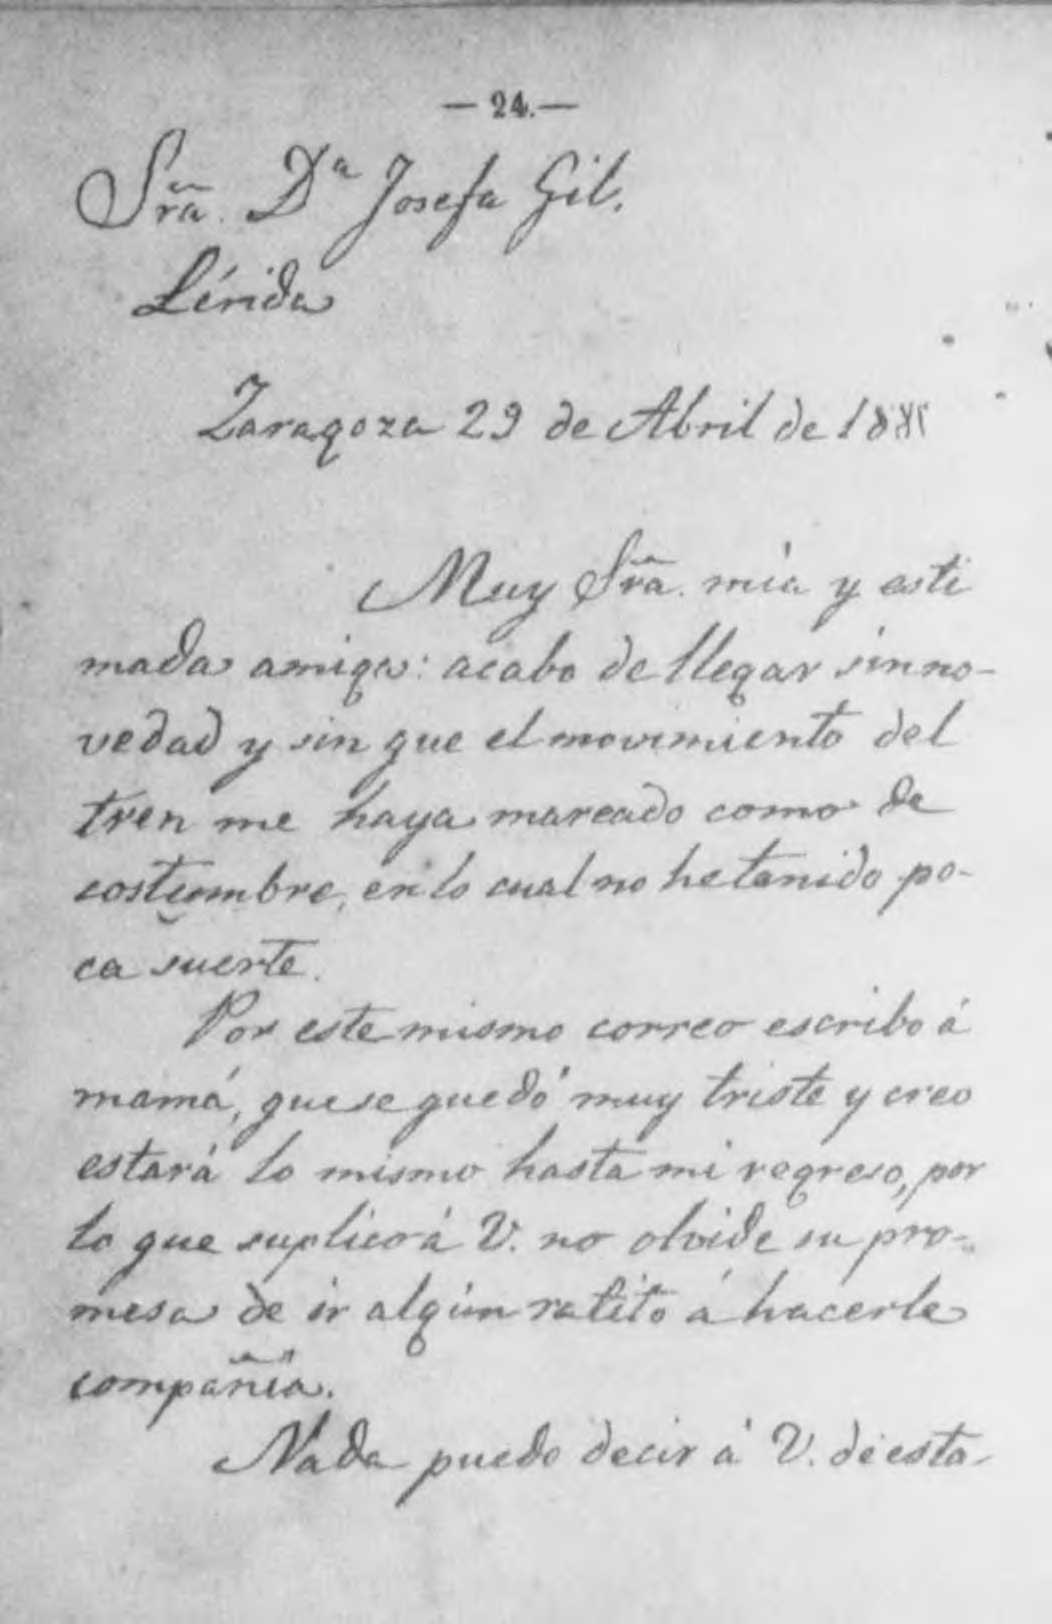 — 24. —
Sra. Dª Josefa Gil.
Lérida
Zaragoza 29 de Abril de 1881
Muy Sra. mía y esti
mada amiga: acabo de llegar sin no-
vedad y sin que el movimiento del
tren me haya mareado como de
costumbre, en lo cual no he tenido po-
ca suerte.
Por este mismo correo escribo á
mamá, que se quedó muy triste y creo
estará lo mismo hasta mi regreso, por
lo que suplico á V. no olvide su pro-
mesa de ir algún ratito á hacerle
compañía.
Nada puedo decir á V. de esta